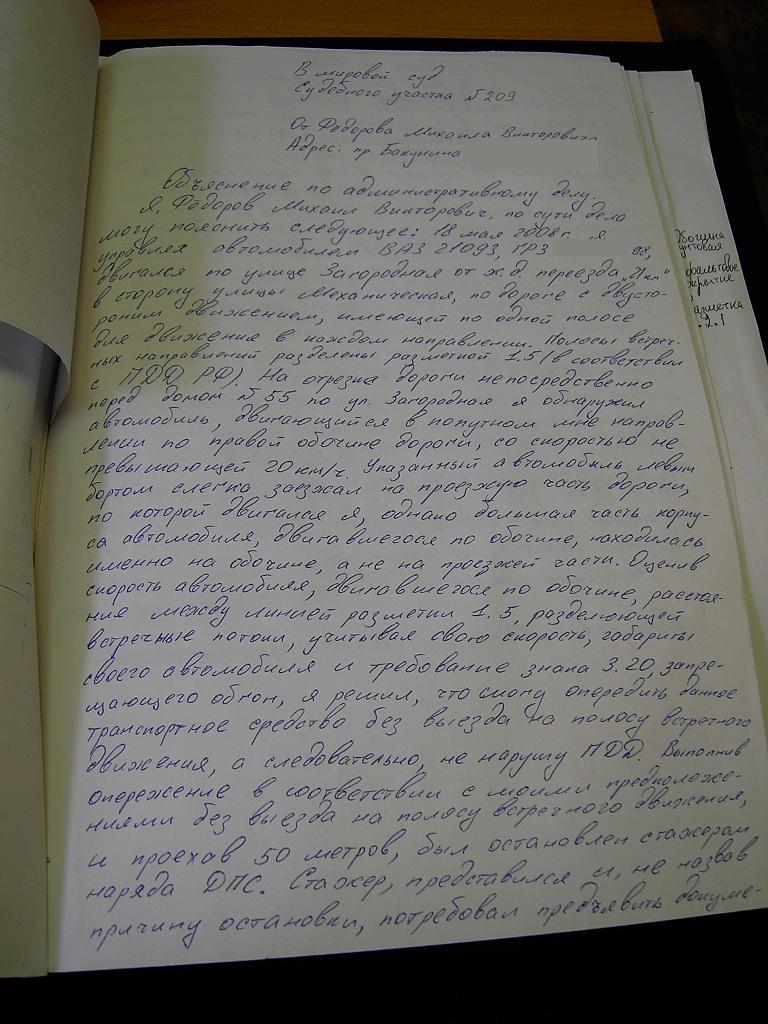 В мировой суд
Судебного участка №209
От Фёдорова Михаила Викторовича
Адрес: пр. Бакунина
Объяснение по административному делу.
Я, Фёдоров Михаил Викторович, по сути дела
могу пояснить следующее: 18 мая 2008г. я
управлял автомобилем ВАЗ 21093, ГРЗ 98,
двигался по улице Загородная от ж.д. переезда „21км"
в сторону улицы Механическая, по дороге с двусто-
ронним движением, имеющей по одной полосе
для движения в каждом направлении. Полосы встреч-
ных направлений разделены разметкой 1.5 (в соответствии
с ПДД РФ). На отрезке дороги непосредственно
перед домом №55 по ул. Загородная я обнаружил
автомобиль, двигающийся в попутном мне направ-
лении по правой обочине дороги, со скоростью не
превышающей 20 км/ч. Указанный автомобиль левым
бортом слегка заезжал на проезжую часть дороги,
по которой двигался я, однако большая часть корпу-
са автомобиля, двигавшегося по обочине, находилась
именно на обочине, а не на проезжей части. Оценив
скорость автомобиля, двигавшегося по обочине, расстоя-
ние между линией разметки 1.5, разделяющей
встречные потоки, учитывая свою скорость, габариты
своего автомобиля и требование знака 3.20, запре-
щающего обгон, я решил, что смогу опередить данное
транспортное средство без выезда на полосу встречного
движения, а следовательно, не нарушу ПДД. Выполнив
опережение в соответствии с моими предположе-
ниями без выезда на полосу встречного движения,
и проехав 50 метров, был остановлен стажером
наряда ДПС. Стажер, представился и, не назвав
причину остановки, потребовал предъявить докуме-